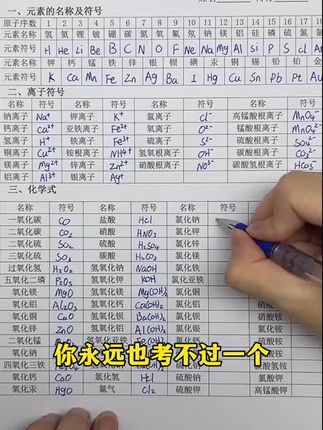 一、元素的名称及符号
原子序数 1 2 3 4 5 6 7 8 9 10 11 12 13 14 15 16 17 18
元素名称 氢 氦 锂 铍 硼 碳 氮 氧 氟 氖 钠 镁 铝 硅 磷 硫 氯 氩
元素符号 H He Li Be B C N O F Ne Na Mg Al Si P S Cl Ar
元素符号 K Ca Mn Fe Zn Ag Ba I Hg Cu Sn Pb Pt Au
二、离子符号
名称 符号 名称 符号 名称 符号 名称 符号
钠离子 Na⁺ 钾离子 K⁺ 氯离子 Cl⁻ 高锰酸根离子 MnO₄⁻
钙离子 Ca²⁺ 亚铁离子 Fe²⁺ 氧离子 O²⁻ 锰酸根离子 MnO₄²⁻
氢离子 H⁺ 铁离子 Fe³⁺ 硫离子 S²⁻ 硫酸根离子 SO₄²⁻
铜离子 Cu²⁺ 铵根离子 NH₄⁺ 氢氧根离子 OH⁻ 碳酸根离子 CO₃²⁻
镁离子 Mg²⁺ 锌离子 Zn²⁺ 硝酸根离子 NO₃⁻ 碳酸氢根离子 HCO₃⁻
铝离子 Al³⁺ 银离子 Ag⁺
三、化学式
名称 化学式 名称 化学式 名称
一氧化碳 CO 盐酸 HCl 氯化钠
二氧化碳 CO₂ 硝酸 HNO₃ 氯化钾
二氧化硫 SO₂ 硫酸 H₂SO₄ 氯化钙
三氧化硫 SO₃ 碳酸 H₂CO₃ 氯化镁
过氧化氢 H₂O₂ 氢氧化钠 NaOH 氯化铁
五氧化二磷 P₂O₅ 氢氧化钾 KOH 氯化亚铁
氧化镁 MgO 氢氧化镁 Mg(OH)₂ 氯化铜
氧化铝 Al₂O₃ 氢氧化钙 Ca(OH)₂ 氯化铝
氧化铜 CuO 氢氧化钡 Ba(OH)₂ 氯化钡
氧化锌 ZnO 氢氧化铝 Al(OH)₃ 氯化锌
二氧化锰
你永远也考不过一个
四氧化三铁 硫酸钠
氧化钙 CaO 氯化氢 HCl 硫酸钾 氯酸钾
氧化汞 HgO 氯气 Cl₂ 硫酸钙 高锰酸钾